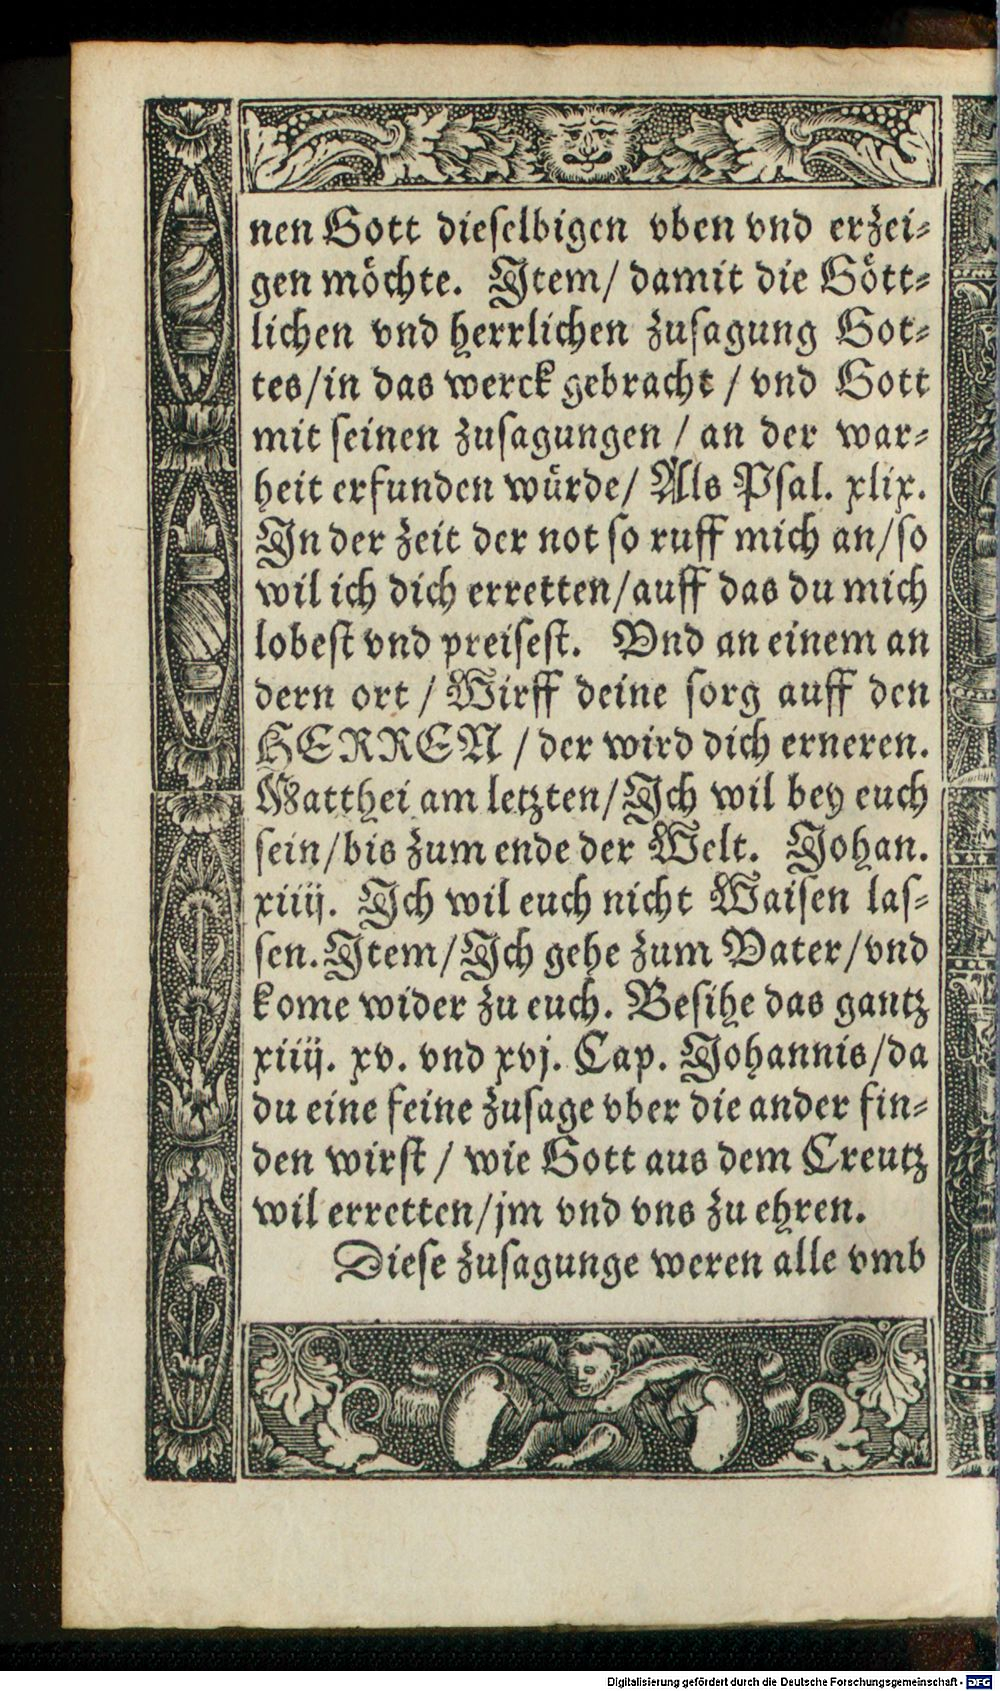 nen Gott dieselbigen vben vnd erzei-
gen möchte. Item/ damit die Gött-
lichen vnd herrlichen zusagung Got-
tes/in das werck gebracht / vnd Gott
mit seinen zusagungen / an der war-
heit erfunden würde/ Als Psal. xlix.
In der zeit der not so ruff mich an/so
wil ich dich erretten/auff das du mich
lobest vnd preisest. Vnd an einem an
dern ort / Wirff deine sorg auff den
HERREN / der wird dich erneren.
Matthei am letzten/Ich wil bey euch
sein/bis zum ende der Welt. Johan.
xiiij. Ich wil euch nicht Waisen las-
sen. Item/Ich gehe zum Vater/vnd
kome wider zu euch. Besihe das gantz
xiiij. xv. vnd xvj. Cap. Johannis/da
du eine feine zusage vber die ander fin-
den wirst / wie Gott aus dem Creutz
wil erretten/jm vnd vns zu ehren.
Diese zusagunge weren alle vmb
Digitalisierung gefördert durch die Deutsche Forschungsgemeinschaft - DFG